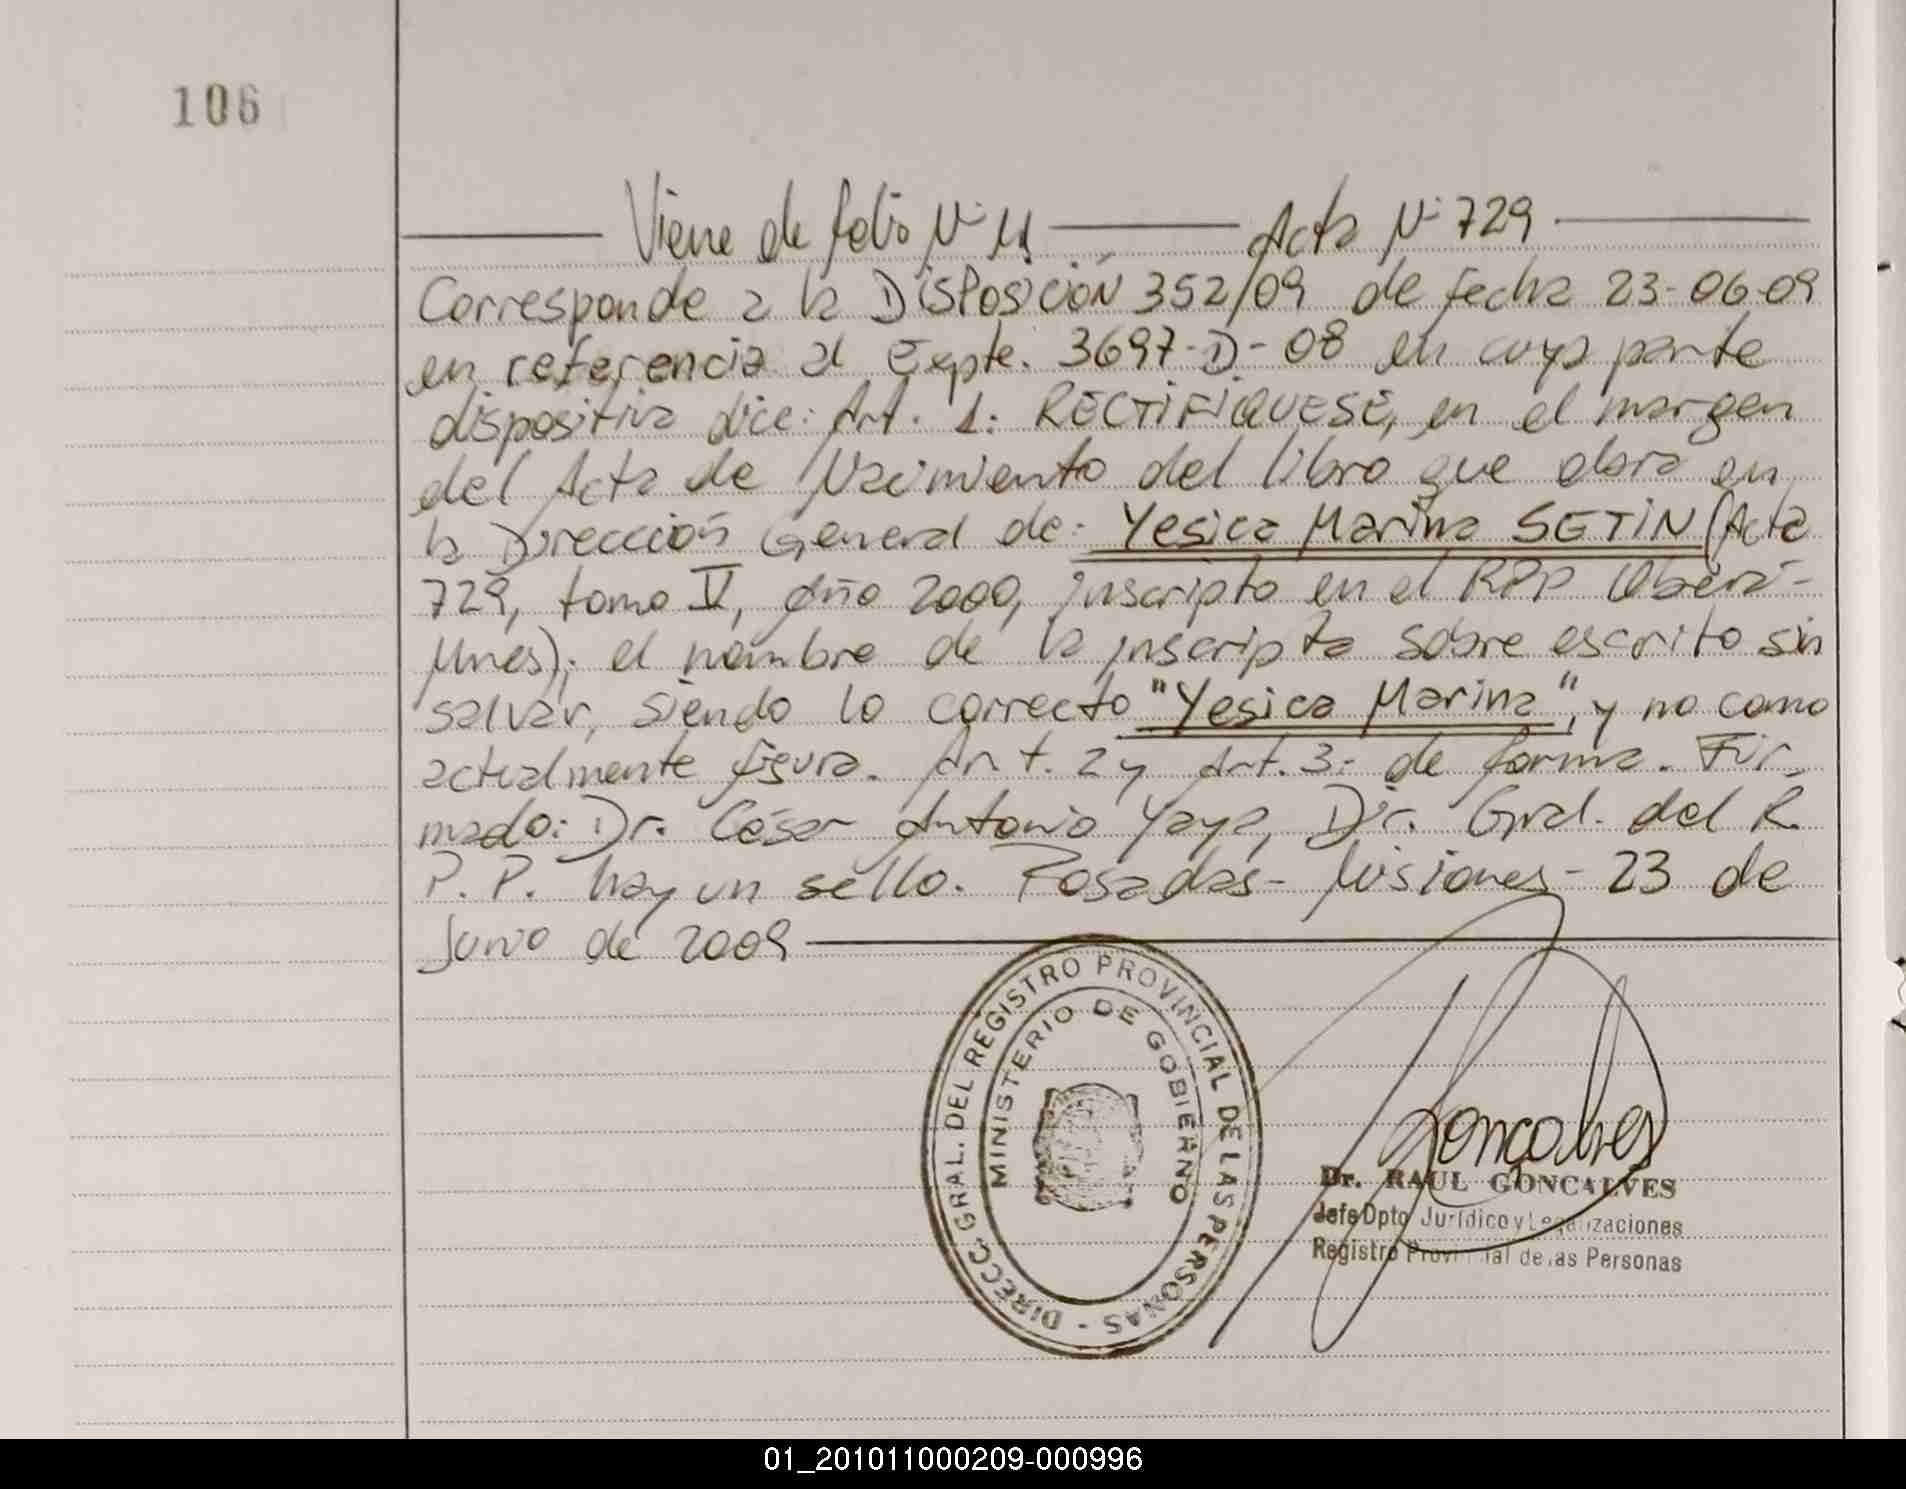 106
Viene de folio Nº 11 Acta Nº 729
Corresponde a la DISPOSICIÓN 352/09 de fecha 23-06-09
en referencia al Expte. 3697-D-08 en cuya parte
dispositiva dice: Art. 1: RECTIFIQUESE, en el margen
del Acta de Nacimiento del libro que obra en
la Dirección General de: Yesica Marina SETIN (Acta
729, tomo IV, año 2000, inscripta en el RPP Oberá-
Mnes); el nombre de la inscripta sobre escrito sin
salvar, siendo lo correcto "Yesica Marina", y no como
actualmente figura. Art. 2 y Art. 3: de forma. Fir-
mado: Dr. César Antonio Yaya, Dir. Gral. del R.
P. P. hay un sello. Posadas- Misiones- 23 de
Junio de 2009
DIRECC. GRAL. DEL REGISTRO PROVINCIAL DE LAS PERSONAS -
MINISTERIO DE GOBIERNO
Goncalves
Dr. RAUL GONCALVES
Jefe Dpto Jurídico y Legalizaciones
Registro Provincial de las Personas
01_201011000209-000996